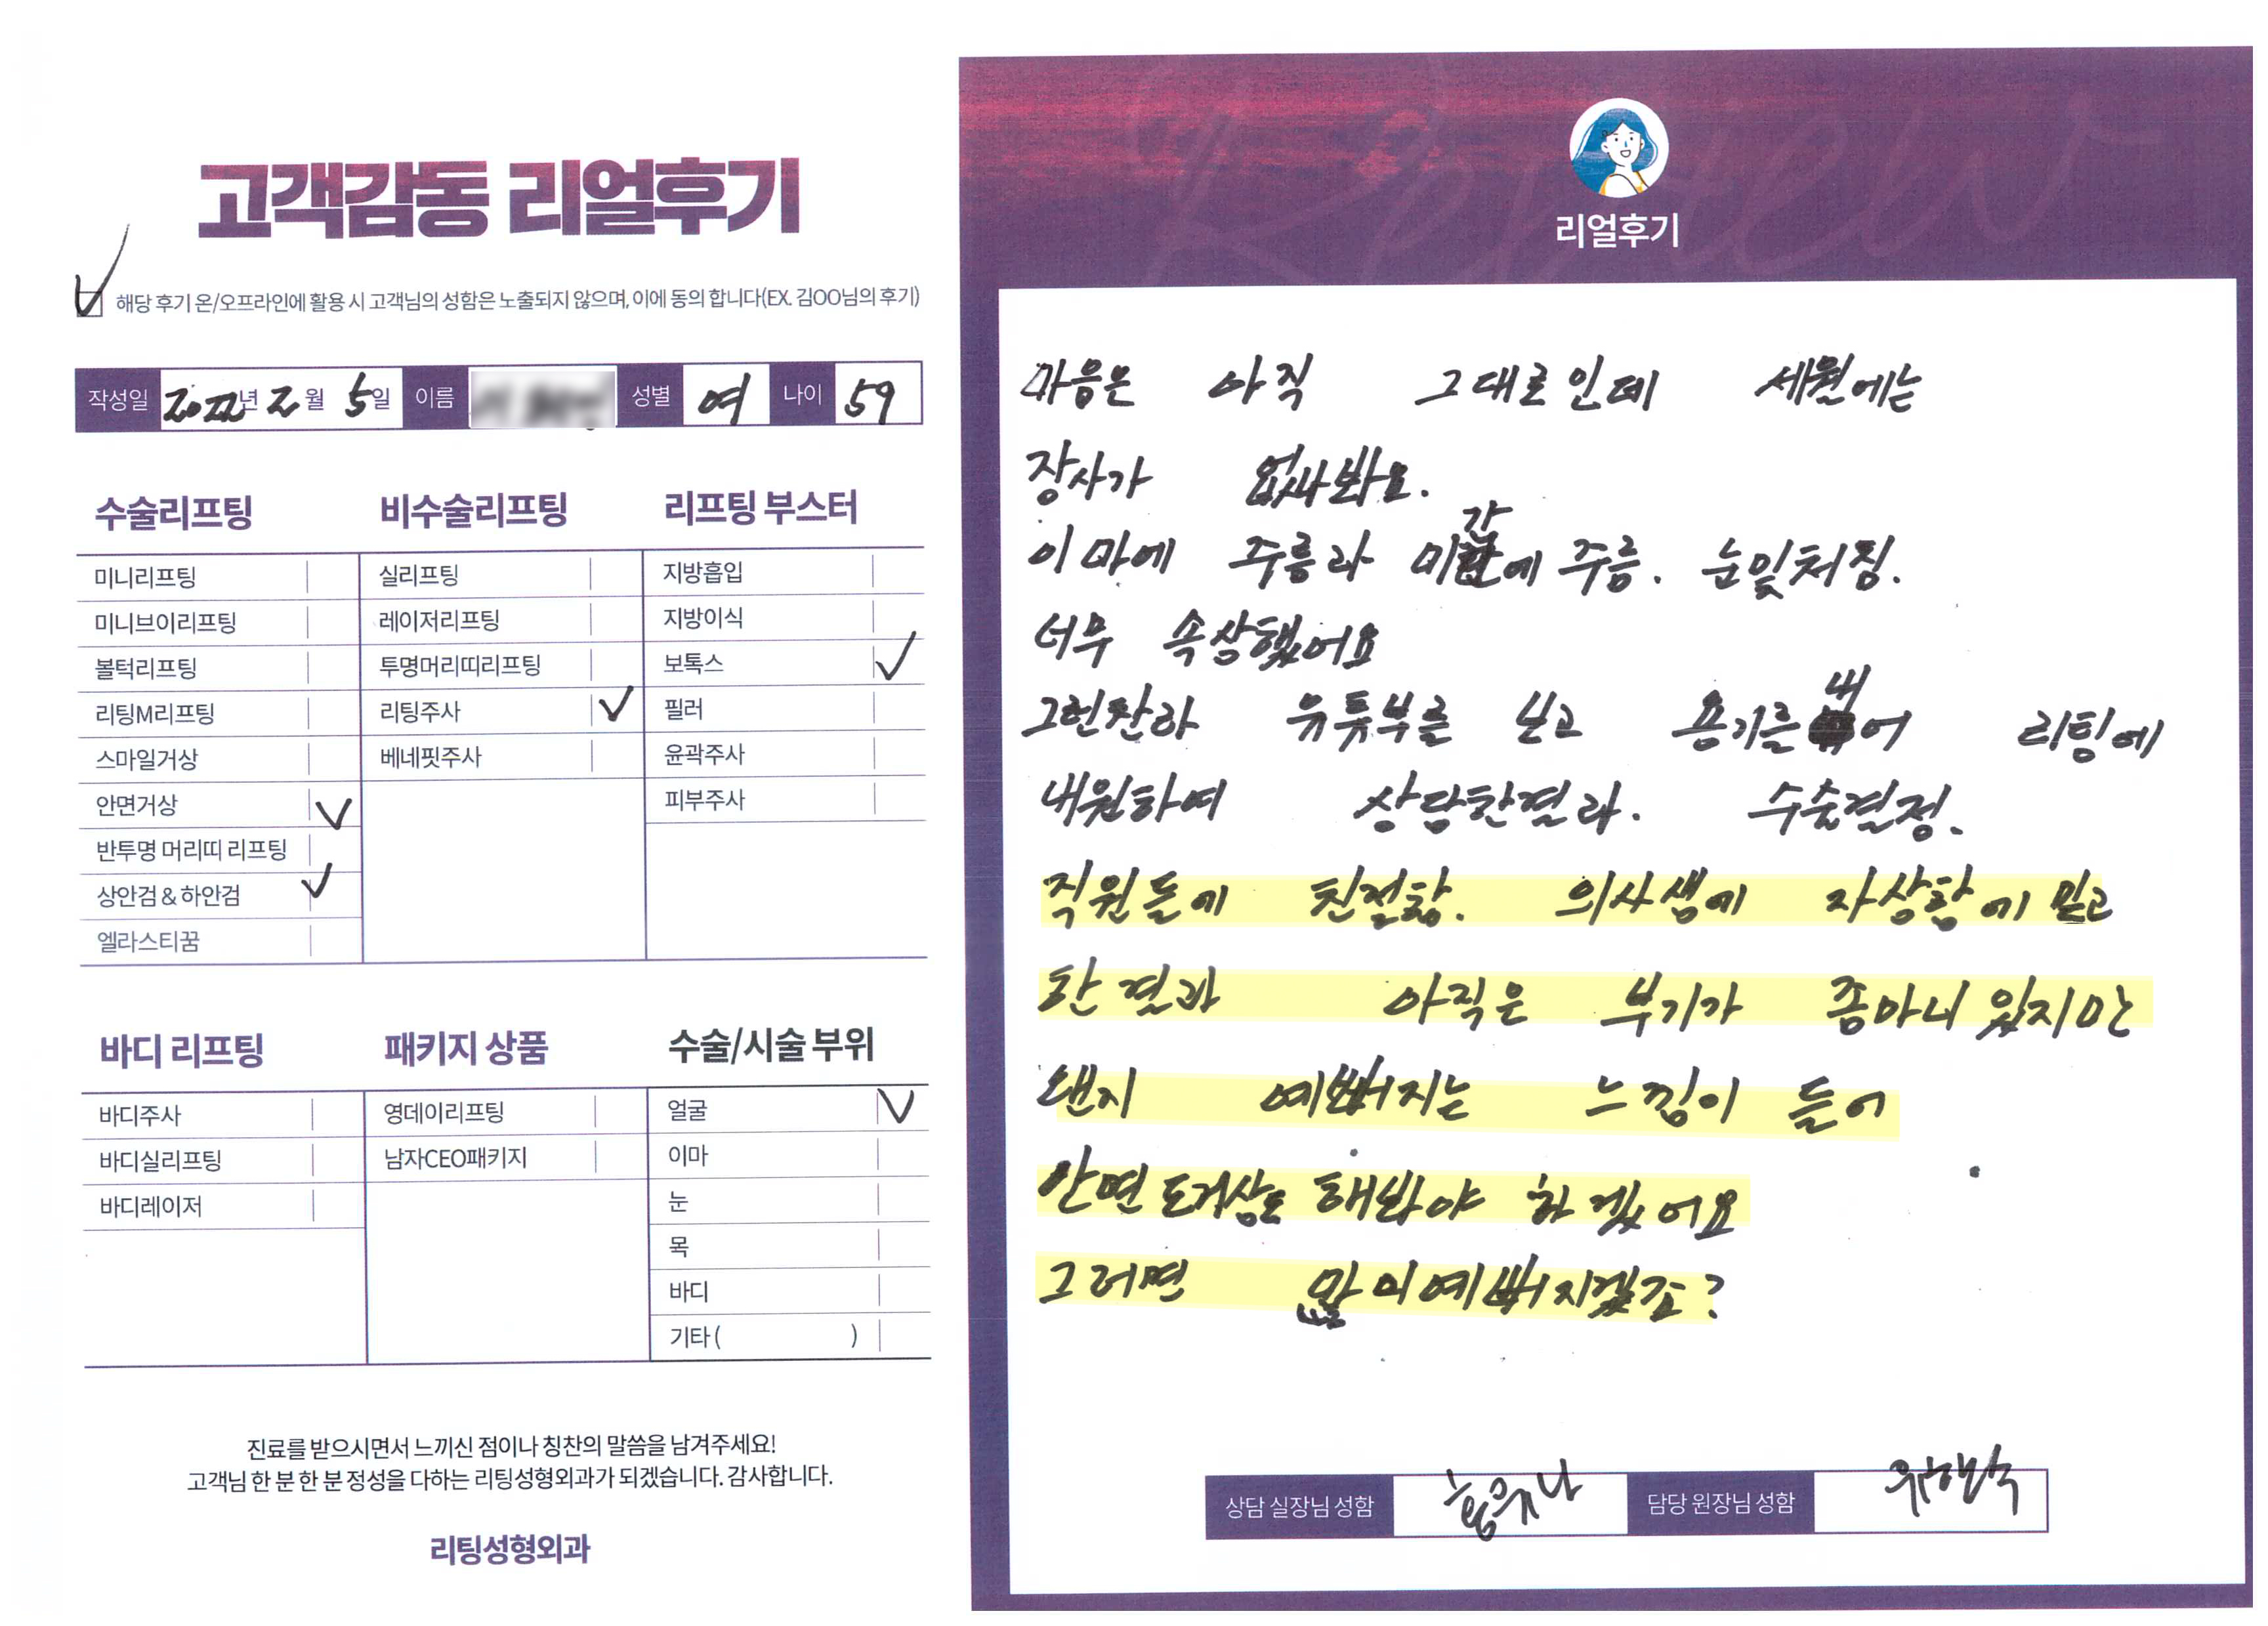 고객감동 리얼후기
해당 후기 온/오프라인에 활용 시 고객님의 성함은 노출되지 않으며, 이에 동의 합니다(EX. 김OO님의 후기)
작성일 2022년 2월 5일 이름 성별 여 나이 59
수술리프팅
미니리프팅
미니브이리프팅
볼턱리프팅
리팅M리프팅
스마일거상
안면거상
반투명 머리띠 리프팅
상안검 & 하안검
엘라스티꿈
비수술리프팅
실리프팅
레이저리프팅
투명머리띠리프팅
리팅주사
베네핏주사
리프팅 부스터
지방흡입
지방이식
보톡스
필러
윤곽주사
피부주사
바디 리프팅
바디주사
바디실리프팅
바디레이저
패키지 상품
영데이리프팅
남자CEO패키지
수술/시술 부위
얼굴
이마
눈
목
바디
기타 ( )
진료를 받으시면서 느끼신 점이나 칭찬의 말씀을 남겨주세요!
고객님 한 분 한 분 정성을 다하는 리팅성형외과가 되겠습니다. 감사합니다.
리팅성형외과
Review
리얼후기
마음은 아직 그대로인데 세월에는
장사가 없나봐요.
이마에 주름과 미간에 주름. 눈밑처짐.
너무 속상했어요
그런찬라 유튜부를 보고 용기를 내어 리팅에
내원하여 상담한결과. 수술결정.
직원들에 친절함. 의사샘에 자상함에 믿고
한 결과 아직은 부기가 좀마니 있지만
왠지 예뻐지는 느낌이 들어
안면도거상도 해봐야 하겠어요
그러면 많이예뻐지겠죠?
상담 실장님 성함
담당 원장님 성함